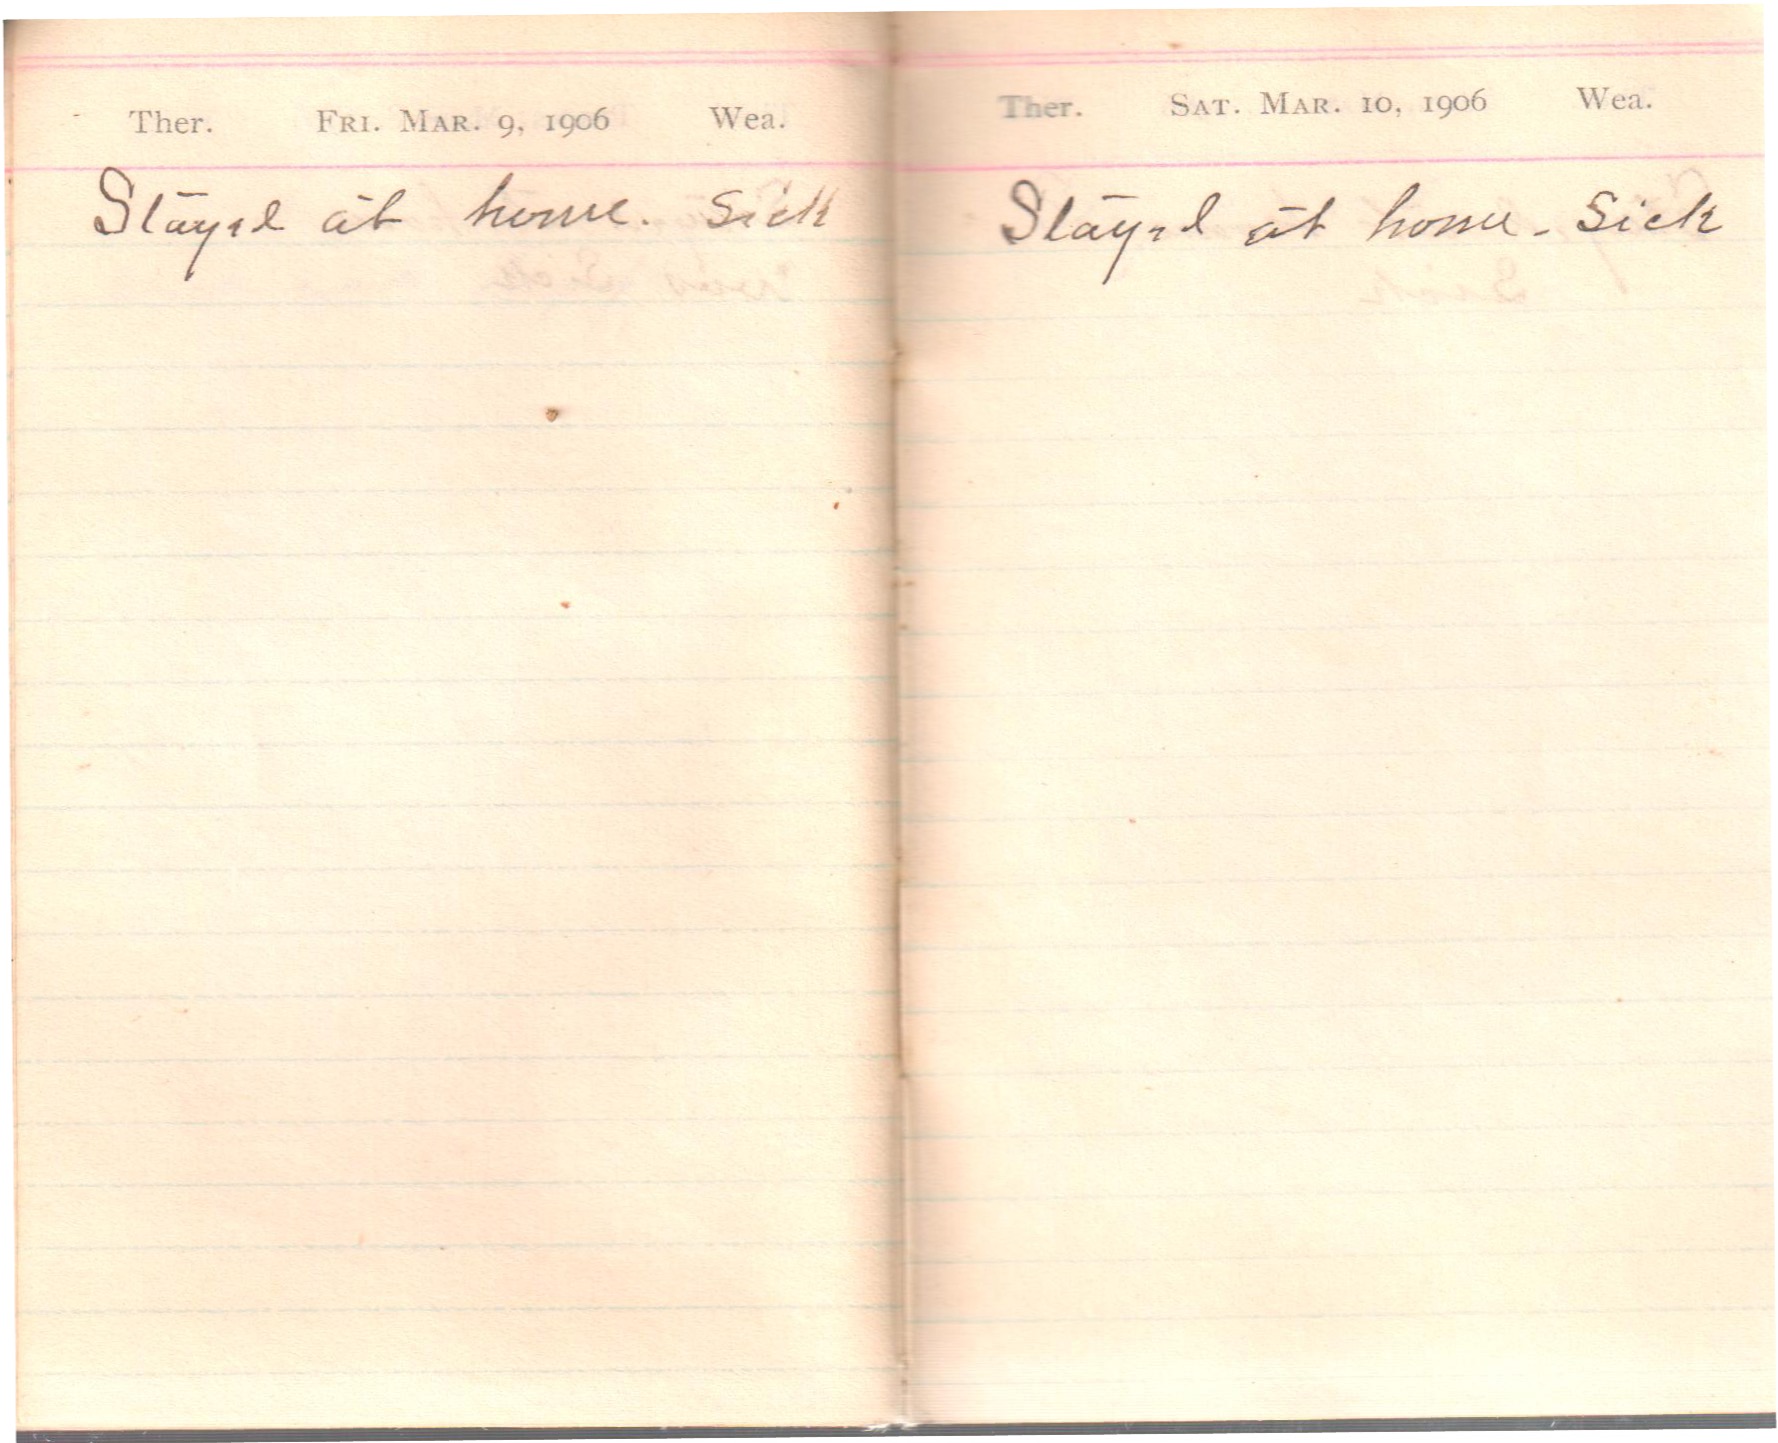 Ther. Fri. Mar. 9, 1906 Wea.
Stayed at home. Sick
Ther. Sat. Mar. 10, 1906 Wea.
Stayed at home. Sick